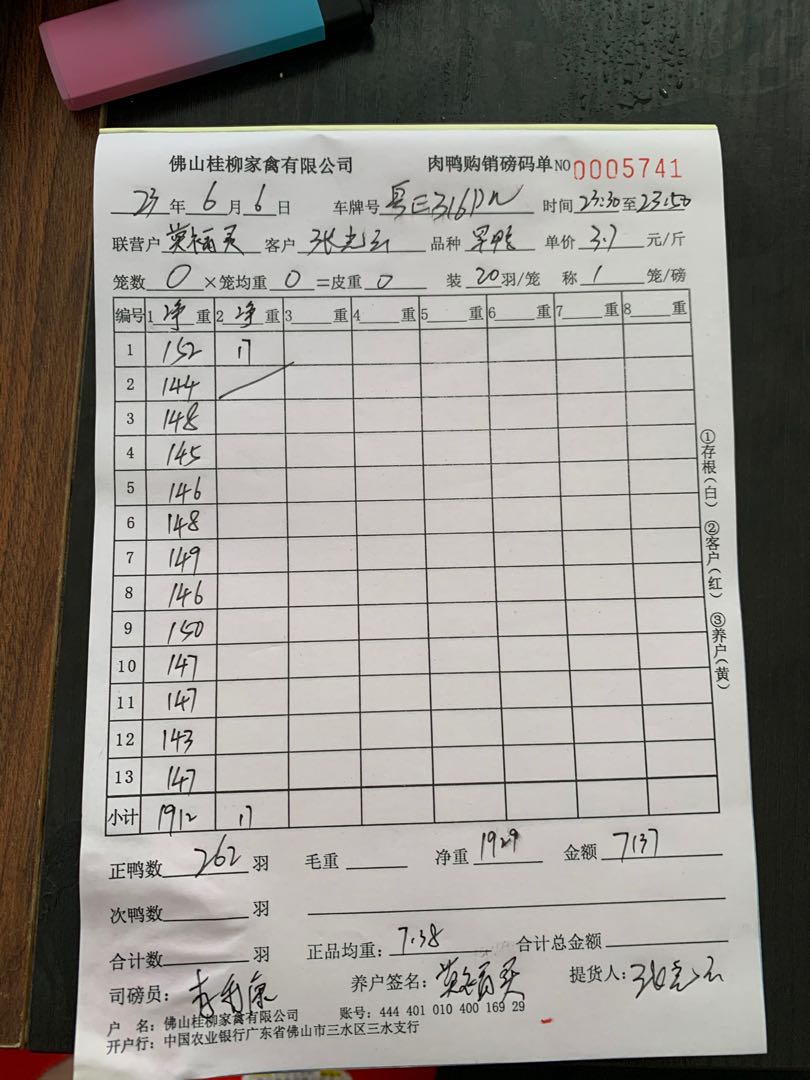 佛山桂柳家禽有限公司 肉鸭购销磅码单 NO 0005741
23 年 6 月 6 日 车牌号 粤E316DN 时间 23:30 至 23:50
联营户 莫福灵 客户 张光云 品种 早鸭 单价 3.7 元/斤
笼数 0 ×笼均重 0 =皮重 0 装 20 羽/笼 称 1 笼/磅
编号 1 净 重 2 净 重 3 重 4 重 5 重 6 重 7 重 8 重
1 152 17
2 144
3 148
4 145
5 146
6 148
7 149
8 146
9 150
10 147
11 147
12 143
13 147
小计 1912 17
①存根(白) ②客户(红) ③养户(黄)
正鸭数 262 羽 毛重 净重 1929 金额 7137
次鸭数 羽
合计数 羽 正品均重: 7.38 合计总金额
司磅员: 养户签名: 莫福灵 提货人: 张光云
户 名: 佛山桂柳家禽有限公司 账号: 444 401 010 400 169 29
开户行: 中国农业银行广东省佛山市三水区三水支行